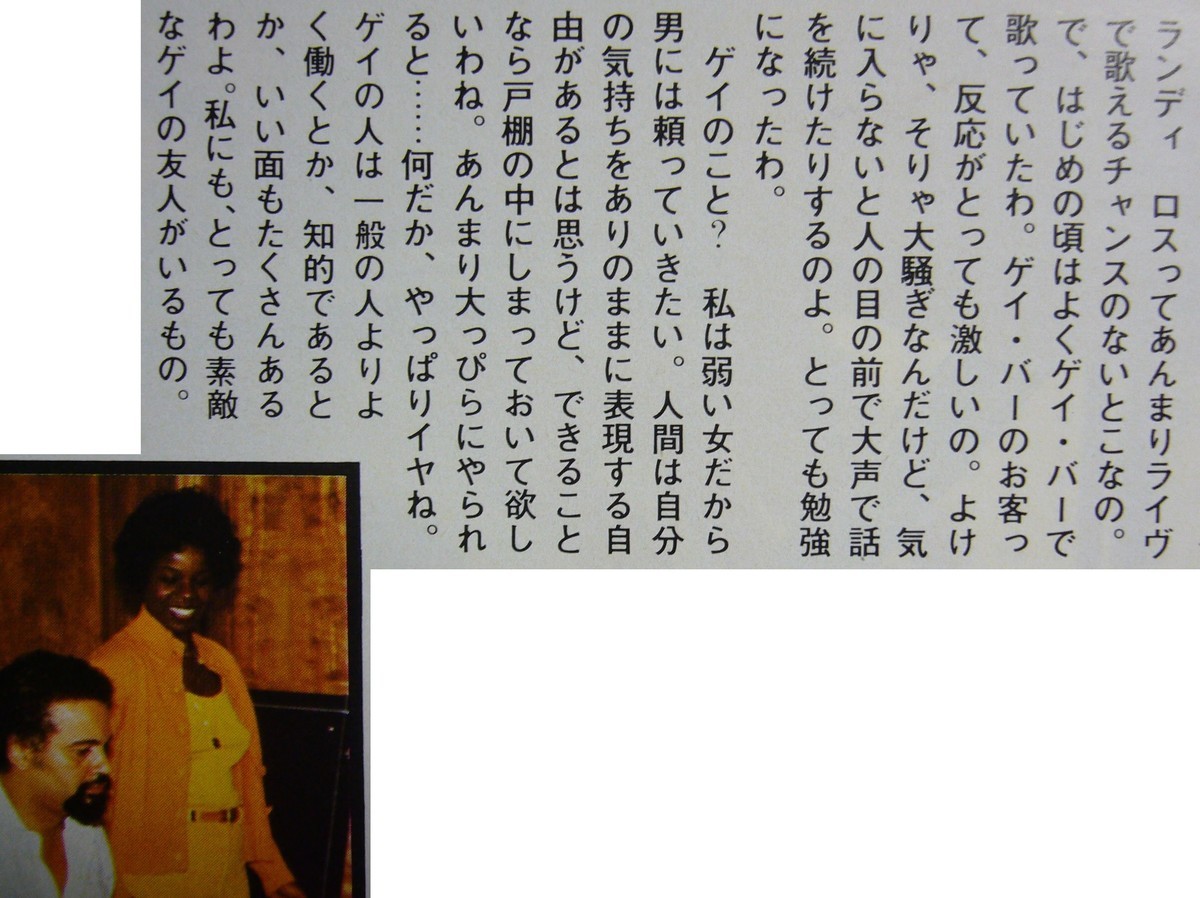 ランディ　ロスってあんまりライヴ
で歌えるチャンスのないとこなの。
で、はじめの頃はよくゲイ・バーで
歌っていたわ。ゲイ・バーのお客っ
て、反応がとっても激しいの。よけ
りゃ、そりゃ大騒ぎなんだけど、気
に入らないと人の目の前で大声で話
を続けたりするのよ。とっても勉強
になったわ。
　ゲイのこと？　私は弱い女だから
男には頼っていきたい。人間は自分
の気持ちをありのままに表現する自
由があるとは思うけど、できること
なら戸棚の中にしまっておいて欲し
いわね。あんまり大っぴらにやられ
ると……何だか、やっぱりイヤね。
ゲイの人は一般の人よりよ
く働くとか、知的であると
か、いい面もたくさんある
わよ。私にも、とっても素敵
なゲイの友人がいるもの。